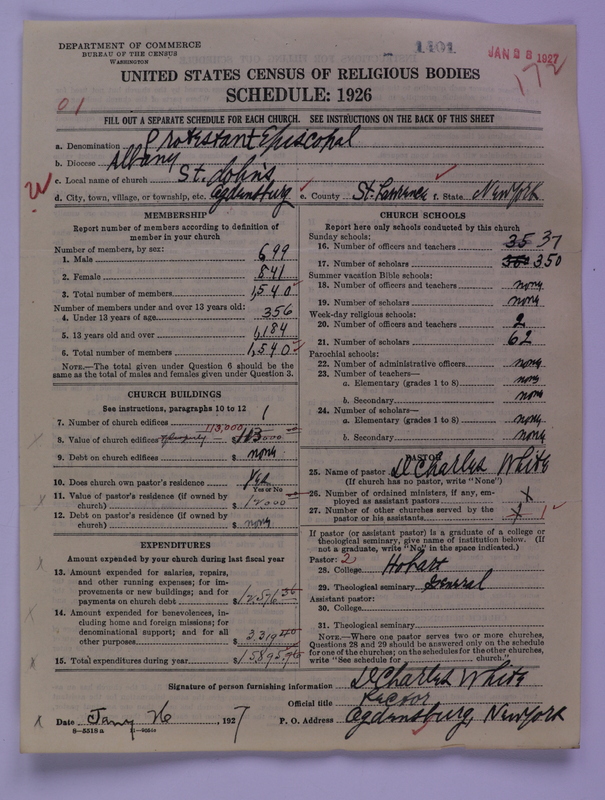 DEPARTMENT OF COMMERCE
BUREAU OF THE CENSUS
WASHINGTON
1401
JAN 28 1927
172
UNITED STATES CENSUS OF RELIGIOUS BODIES
SCHEDULE: 1926
01
FILL OUT A SEPARATE SCHEDULE FOR EACH CHURCH. SEE INSTRUCTIONS ON THE BACK OF THIS SHEET
a. Denomination Protestant Episcopal
b. Diocese Albany
c. Local name of church St. John's
d. City, town, village, or township, etc. Ogdensburg e. County St. Lawrence f. State New York
MEMBERSHIP
Report number of members according to definition of
member in your church
Number of members, by sex:
1. Male 699
2. Female 841
3. Total number of members 1,540
Number of members under and over 13 years old:
4. Under 13 years of age 356
5. 13 years old and over 1,184
6. Total number of members 1,540
NOTE.—The total given under Question 6 should be the
same as the total of males and females given under Question 3.
CHURCH BUILDINGS
See instructions, paragraphs 10 to 12
7. Number of church edifices 1
113,000
8. Value of church edifices property $113,000
9. Debt on church edifices $ none
10. Does church own pastor's residence Yes
Yes or No
11. Value of pastor's residence (if owned by
church) $12000
12. Debt on pastor's residence (if owned by
church) $ none
EXPENDITURES
Amount expended by your church during last fiscal year
13. Amount expended for salaries, repairs,
and other running expenses; for im-
provements or new buildings; and for
payments on church debt $12,576.36
14. Amount expended for benevolences, in-
cluding home and foreign missions; for
denominational support; and for all
other purposes $3,319.40
15. Total expenditures during year $15895.76
CHURCH SCHOOLS
Report here only schools conducted by this church
Sunday schools:
16. Number of officers and teachers 35 37
17. Number of scholars 350
Summer vacation Bible schools:
18. Number of officers and teachers none
19. Number of scholars none
Week-day religious schools:
20. Number of officers and teachers 2
21. Number of scholars 62
Parochial schools:
22. Number of administrative officers none
23. Number of teachers—
a. Elementary (grades 1 to 8) none
b. Secondary none
24. Number of scholars—
a. Elementary (grades 1 to 8) none
b. Secondary none
PASTOR
25. Name of pastor D Charles White
(If church has no pastor, write "None")
26. Number of ordained ministers, if any, em-
ployed as assistant pastors x
27. Number of other churches served by the
pastor or his assistants 1 1
If pastor (or assistant pastor) is a graduate of a college or
theological seminary, give name of institution below. (If
not a graduate, write "No" in the space indicated.)
Pastor: 2
28. College Hobart
29. Theological seminary General
Assistant pastor:
30. College
31. Theological seminary
NOTE.—Where one pastor serves two or more churches,
Questions 28 and 29 should be answered only on the schedule
for one of the churches; on the schedules for the other churches,
write "See schedule for church."
Signature of person furnishing information D Charles White
Official title Rector
Date Jany 26, 1927 P. O. Address Ogdensburg, New York
8-5518 a